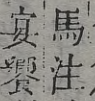 馬注
宴饗